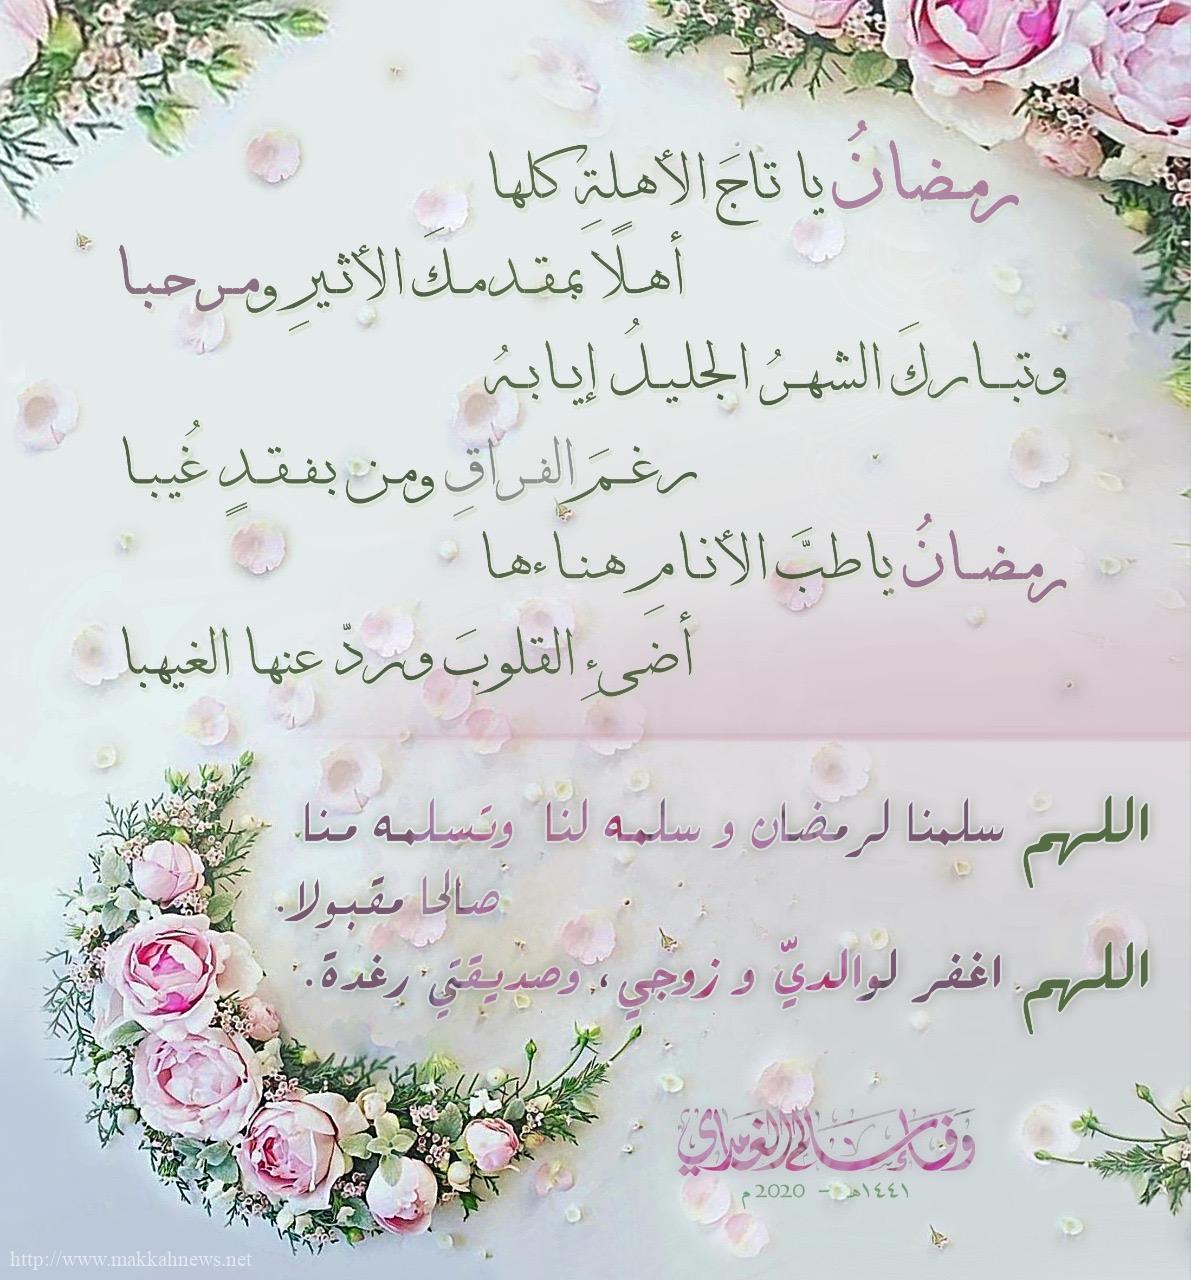 رمضانُ يا تاجَ الأهلةِ كلها
أهلًا بمقدمكَ الأثيرِ ومرحبا
وتباركَ الشهرُ الجليلُ إيابهُ
رغمَ الفراقِ ومن بفقدٍ غُيبا
رمضانُ ياطبَّ الأنامِ هناءها
أضىءِ القلوبَ وردّ عنها الغيهبا
اللهم سلمنا لرمضان و سلمه لنا وتسلمه منا
صالحا مقبولا.
اللهم اغفر لوالديّ و زوجي، وصديقتي رغدة.
وفاء سالم الغامدي
١٤٤١هـ - 2020م
http://www.makkahnews.net